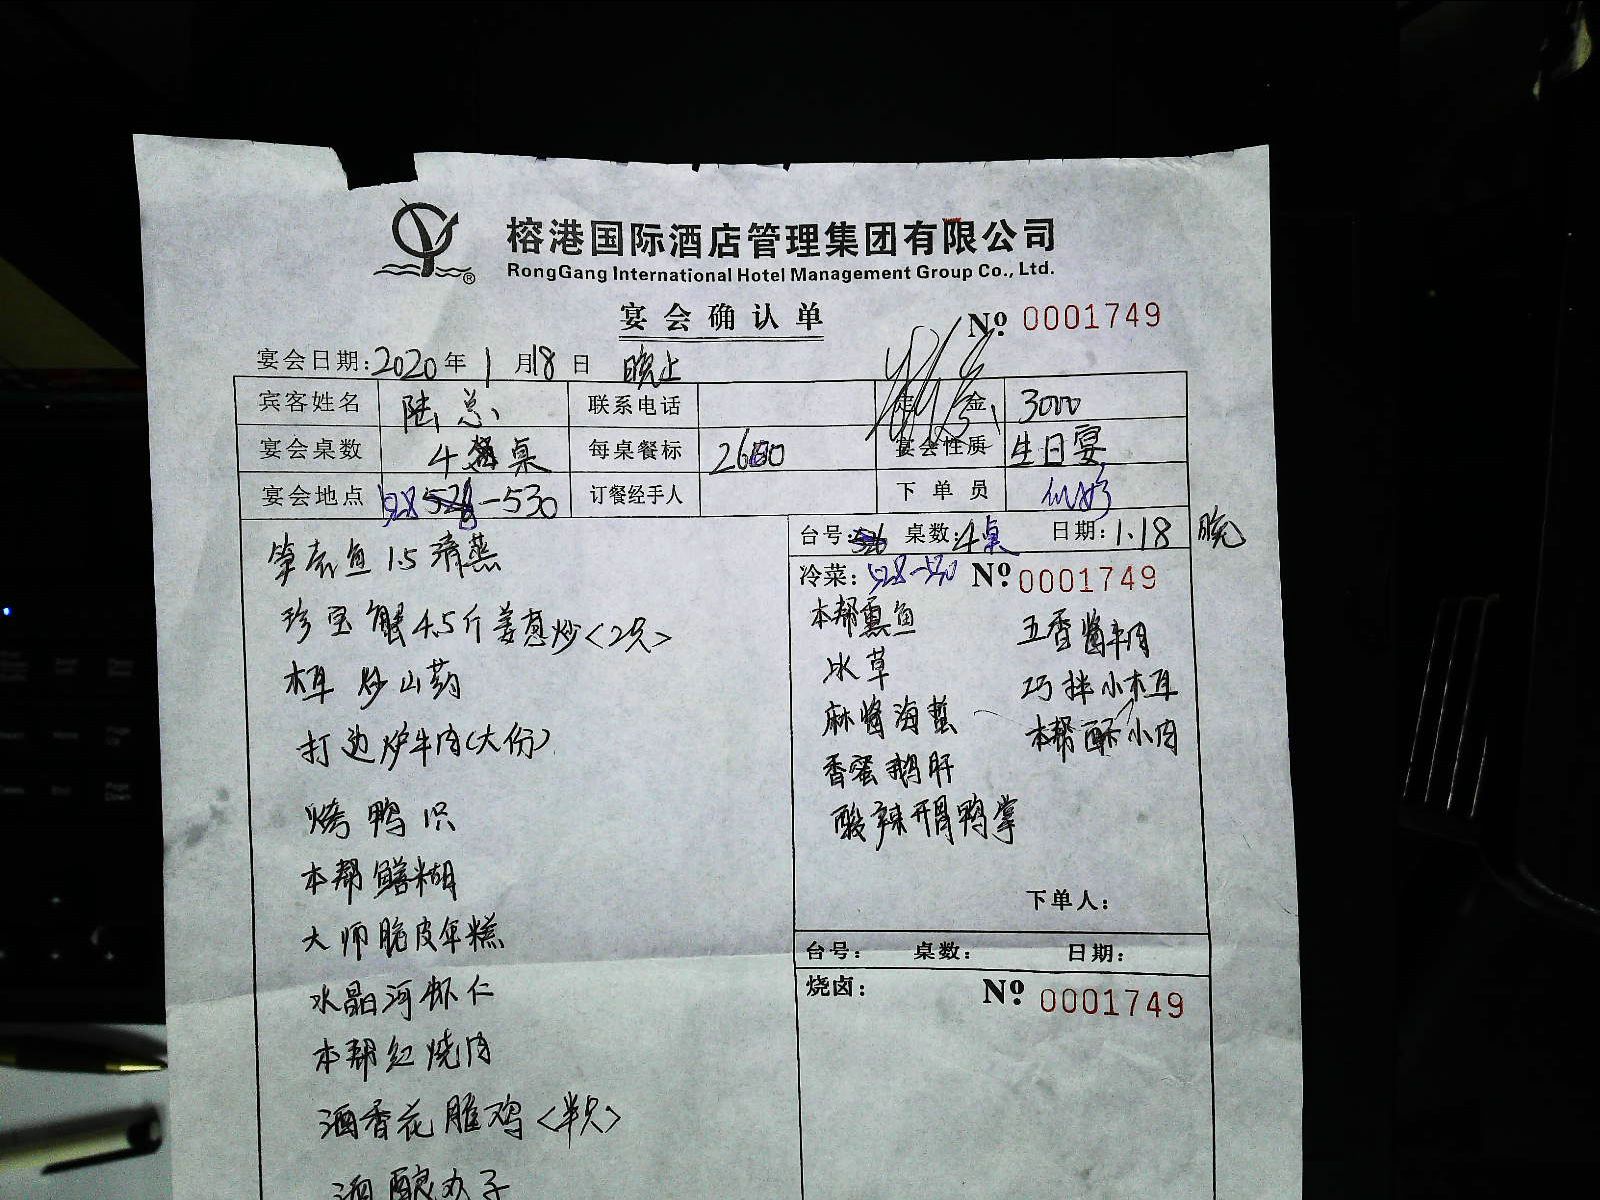 榕港国际酒店管理集团有限公司
RongGang International Hotel Management Group Co., Ltd.
宴会确认单
№ 0001749
宴会日期:2020年1月18日 晚上
宾客姓名 陆总 联系电话 定金 3000
宴会桌数 4 桌 每桌餐标 2680 宴会性质 生日宴
宴会地点 528-530 订餐经手人 下单员
台号: 桌数:4桌 日期:1.18 晚
冷菜:528-530 № 0001749
本帮熏鱼 五香酱牛肉
冰草 巧拌小木耳
麻酱海蜇 本帮酥小肉
香蛋鹅肝
酸辣开胃鸭掌
下单人:
台号: 桌数: 日期:
烧卤: № 0001749
笋壳鱼1.5清蒸
珍宝蟹4.5斤姜葱炒<2只>
木耳炒山药
打边炉牛肉(大份)
烤鸭1只
本帮鳝糊
大师脆皮年糕
水晶河虾仁
本帮红烧肉
酒香花雕鸡<半只>
酒酿丸子